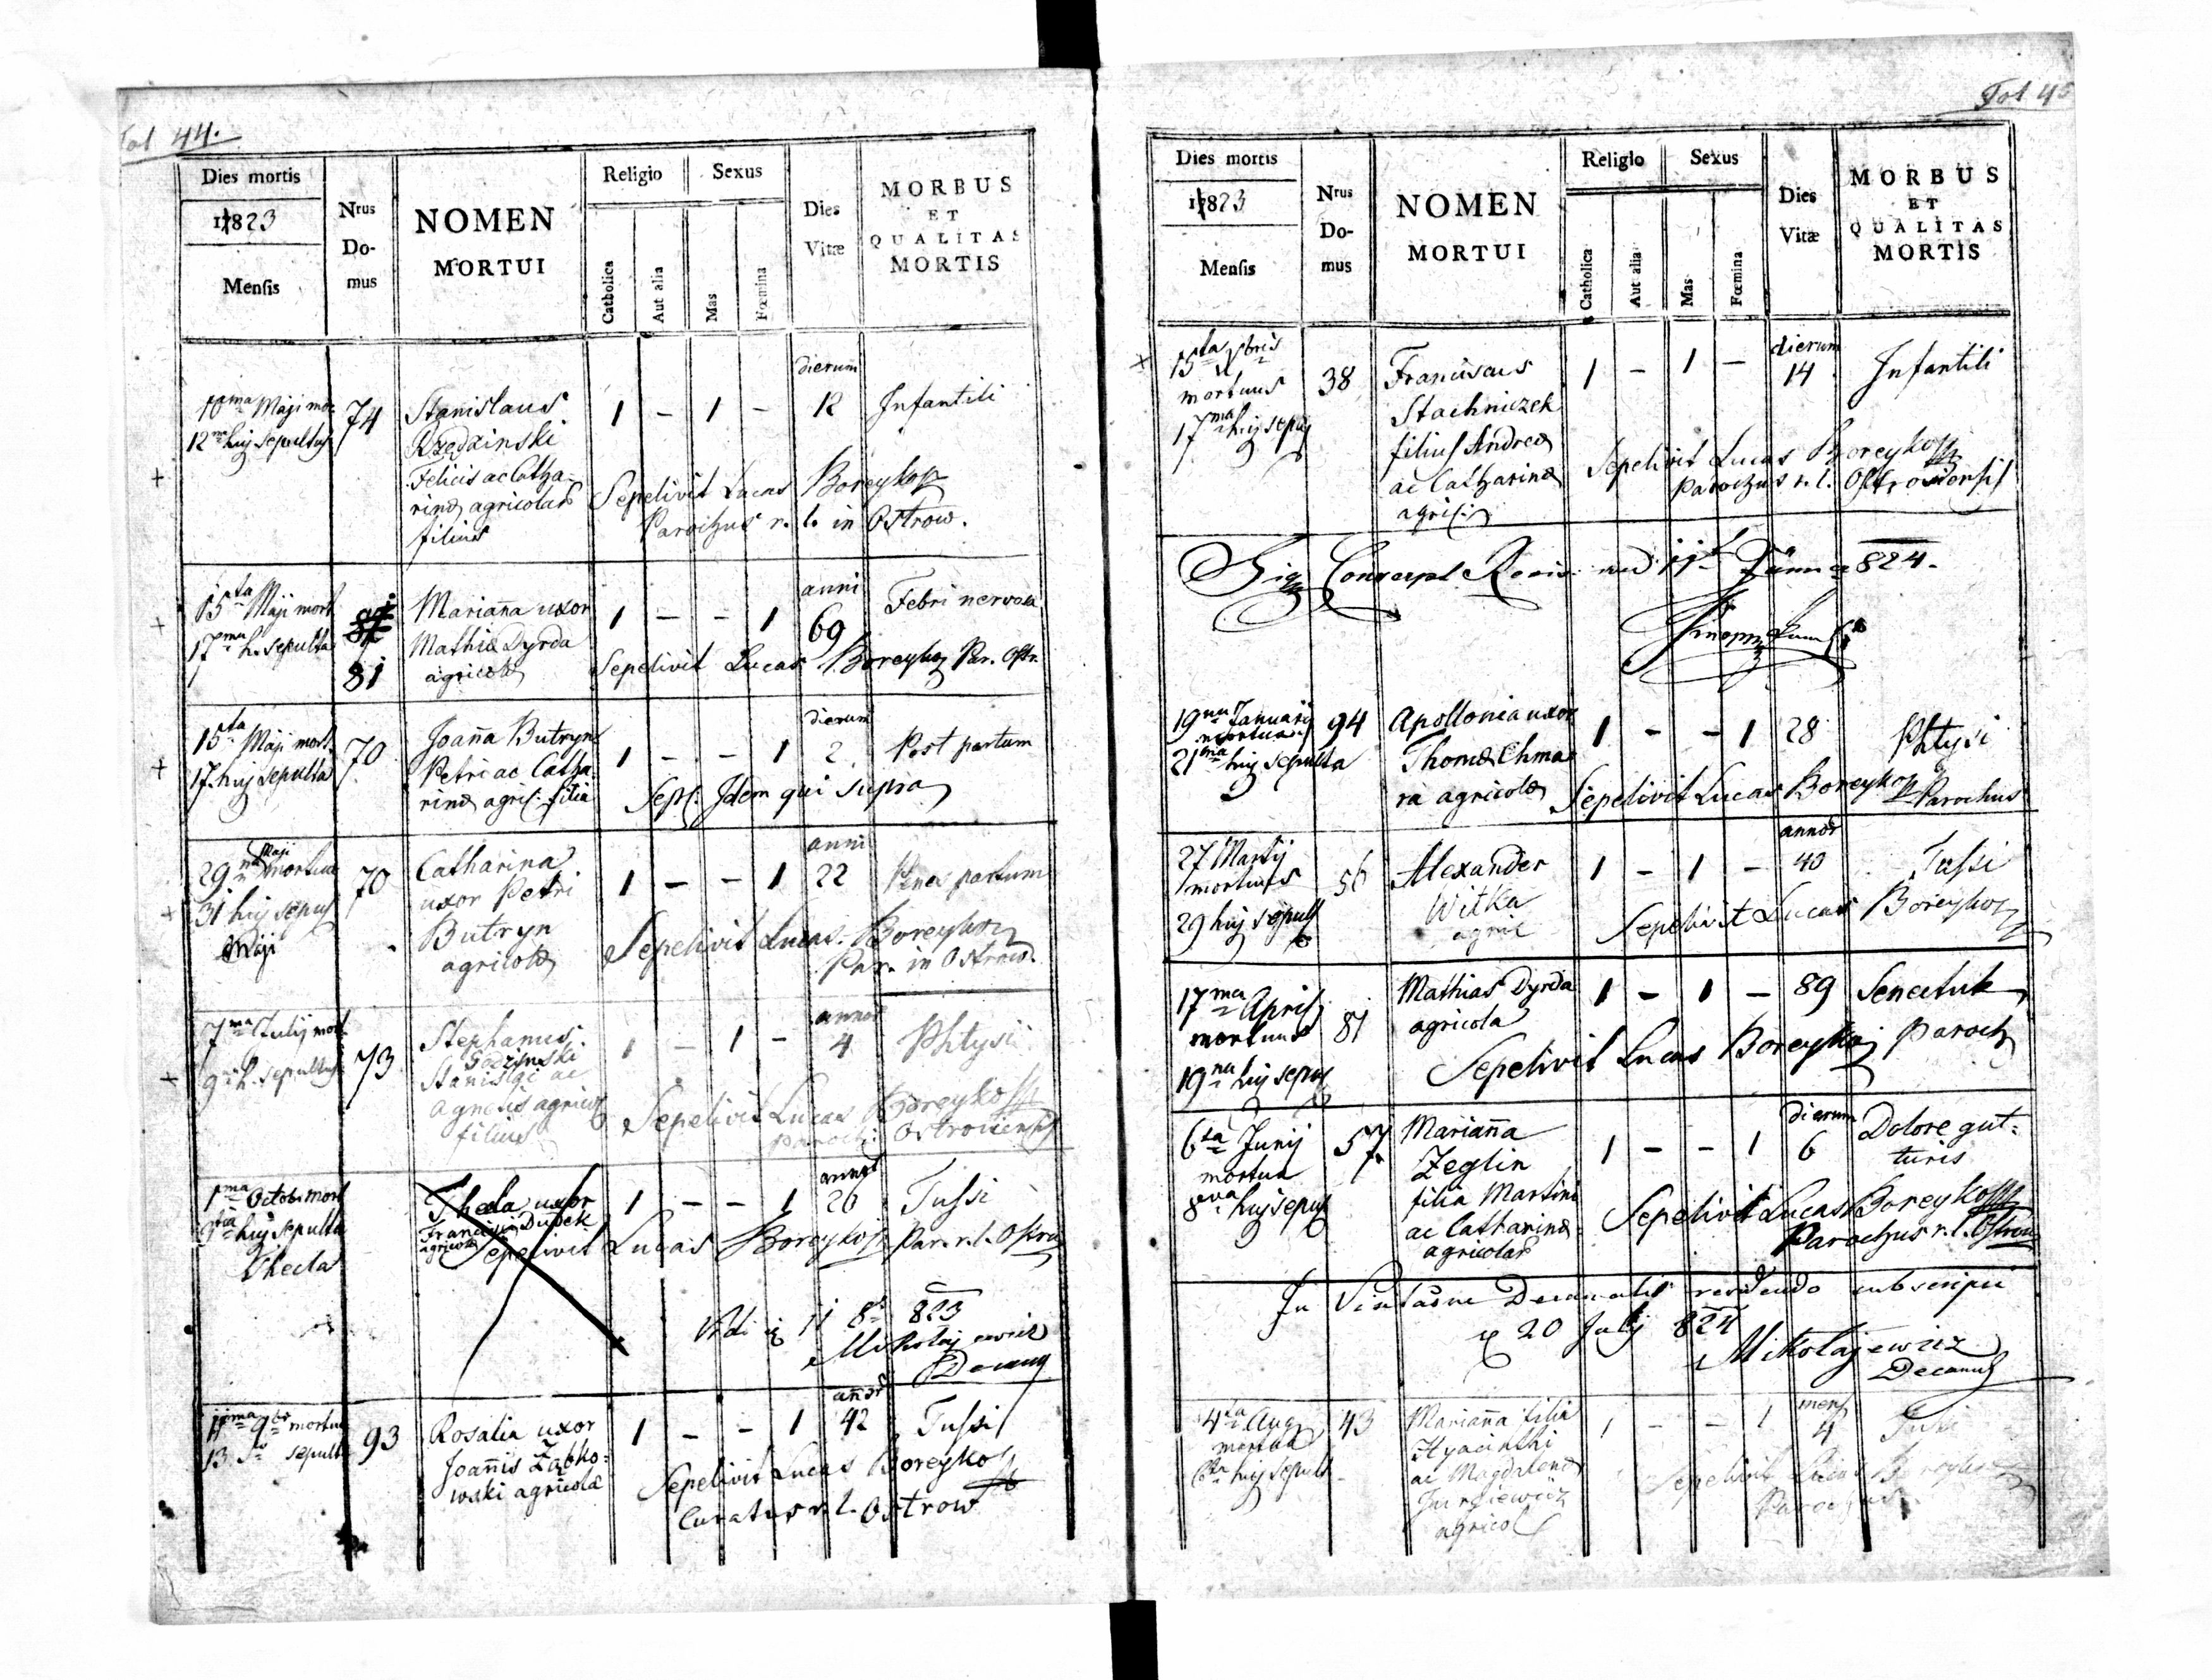 Fol 44.
Dies mortis
1823
Mensis
Nrus
Do-
mus
NOMEN
MORTUI
Religio
Catholica
Aut alia
Sexus
Mas
Fœmina
Dies
Vitæ
MORBUS
ET
QUALITAS
MORTIS
10ma Maji mor
12ma huj sepultus
74
Stanislaus
Felicis ac Catha-
rinæ agricolar
filius
1 - 1 -
dierum
12
Infantili
Sepelivit Lucas Boreyko
Parochus r. l. in Ostrow.
15ta Maji mort
17ma h. sepulta
81
Marianna uxor
Mathiæ Dyrda
agricolæ
1 - - 1
anni
69
Febri nervosa
Sepelivit Lucas Boreyko Par. Ostr.
15ta Maji mort.
17. huj sepulta
70
Joanna Butryn
Petri ac Catha-
rinæ agric. filia
1 - - 1
dierum
2
Post partum
Sepl. Idem qui supra
29na Maji mortua
31 huj sepul
Maji
70
Catharina
uxor Petri
Butryn
agricolæ
1 - - 1
anni
22
partum
Sepelivit Lucas Boreyko
Par. in Ostrow.
7ma Julij mort.
9 h. sepultus
73
Stephanus
Stanislai ac
Agnetis agricol
filius
1 - 1 -
annor
4
Phtysi
Sepelivit Lucas Boreyko
Paroch: Ostroviensis
1ma Octob. mort
3tia huj sepulta
Thecla
Thecla uxor
Francisci Dusek
agricolæ
1 - - 1
annor
26
Tussi
Sepelivit Lucas Boreyko Par. r. l. Ostrow
Vidi 11 8b 823
Mikolajewicz
Decanus
11ma 9br mortua
13 sepulta
93
Rosalia uxor
Joannis Ząbko-
wski agricola
1 - - 1
annor
42
Tussi
Sepelivit Lucas Boreyko
Curatus r. l. Ostrow
Fol 45
Dies mortis
1823
Mensis
Nrus
Do-
mus
NOMEN
MORTUI
Religio
Catholica
Aut alia
Sexus
Mas
Fœmina
Dies
Vitæ
MORBUS
ET
QUALITAS
MORTIS
15ta Xbris
mortuus
17ma huj sepul
38
Franciscus
Stachniczek
filius Andreæ
ac Catharinæ
agric:
1 - 1 -
dierum
14
Infantili
Sepelivit Lucas Boreyko
Parochus r. l. Ostroviensis
Conscript. Revis. 11t Jänner 824.
19na Januarij
mortua
21ma huj sepulta
94
Apollonia uxor
Thomæ Chma
ra agricolæ
1 - - 1
28
Phtysi
Sepelivit Lucas Boreyko Parochus
27 Martij
mortuus
29 huj sepult
56
Alexander
Witka
agric
1 - 1 -
annor
40
Tussi
Sepelivit Lucas Boreyko
17ma Aprilis
mortuus
19na huj sepul
81
Mathias Dyrda
agricola
1 - 1 -
89
Senectute
Sepelivit Lucas Boreyko Paroch
6ta Junij
mortua
8va huj sepul
57
Marianna
Zeglin
filia Martini
ac Catharinæ
agricolar
1 - - 1
dierum
6
Dolore gut-
turis
Sepelivit Lucas Boreyko
Parochus r. l. Ostrow
In Visitatione Decanali residendo subscripsi
20 July 824
Mikolajewicz
Decanus
4ta Aug
mortua
6ta huj sepult
43
Marianna filia
Hyacinthi
ac Magdalenæ
Jurkiewicz
agricol
1 - - 1
mens
4
Tussi
Sepelivit Lucas Boreyko
Parochus